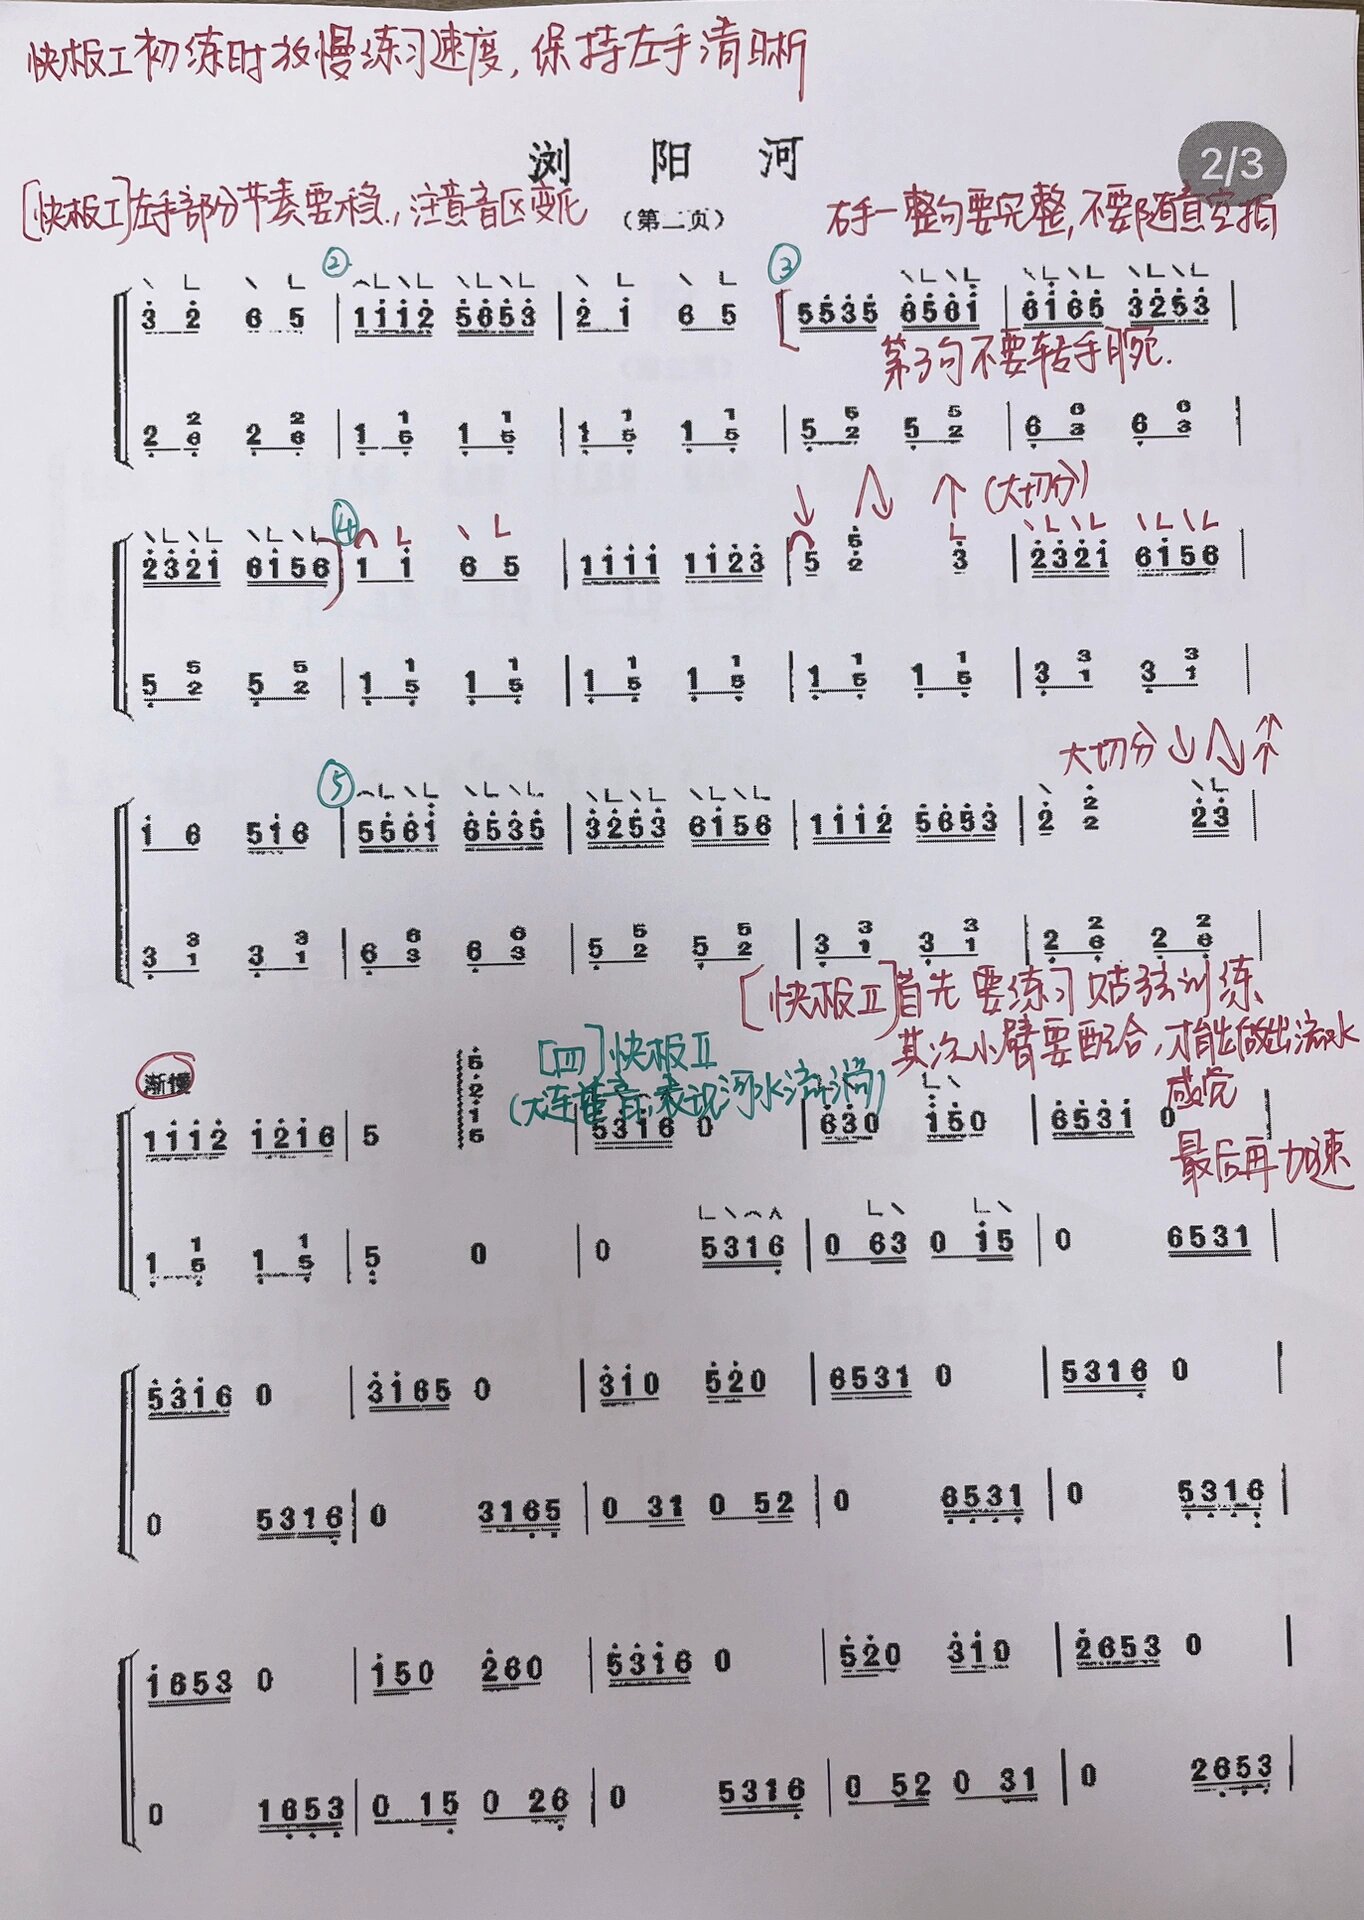 快板I初练时放慢练习速度，保持左手清晰
浏 阳 河
2/3
[快板I]左手部分节奏要稳，注意音区变化
（第二页）
右手一整句要完整，不要随意空拍
② ③
3 2 6 5 | 1112 5653 | 2 1 6 5 | 5535 6561 | 6165 3253 |
第3句不要转手腕.
2 2 6 2 2 6 | 1 1 5 1 1 5 | 1 1 5 1 1 5 | 5 5 2 5 5 2 | 6 6 3 6 6 3 |
(大切分)
④
2321 6156 | 1 1 6 5 | 1111 1123 | 5 5 2 3 | 2321 6156 |
5 5 2 5 5 2 | 1 1 5 1 1 5 | 1 1 5 1 1 5 | 1 1 5 1 1 5 | 3 3 1 3 3 1 |
大切分
⑤
1 6 516 | 5561 6535 | 3253 6156 | 1112 5653 | 2 2 2 23 |
3 3 1 3 3 1 | 6 6 3 6 6 3 | 5 5 2 5 5 2 | 3 3 1 3 3 1 | 2 2 6 2 2 6 |
[快板II]首先要练习贴弦训练
其次小臂要配合，才能做出流水
感觉
最后再加速
[四]快板II
(大连音，表现河水流淌)
渐慢
1112 1216 | 5 5 2 1 5 | 5316 0 | 630 150 | 6531 0 |
1 1 5 1 1 5 | 5 0 | 0 5316 | 0 63 0 15 | 0 6531 |
5316 0 | 3165 0 | 310 520 | 6531 0 | 5316 0 |
0 5316 | 0 3165 | 0 31 0 52 | 0 6531 | 0 5316 |
1653 0 | 150 260 | 5316 0 | 520 310 | 2653 0 |
0 1653 | 0 15 0 26 | 0 5316 | 0 52 0 31 | 0 2653 |